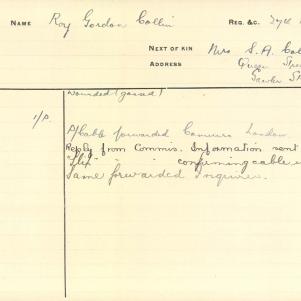 NAME Roy Gordon Collin REG. &C.
NEXT OF KIN Mrs S. A. Col
ADDRESS Queen Stre
Gawler St
wounded (gassed)
1/P. A/Cable forwarded Commrs London.
Reply from Commis. Information sent
"Flix" " " confirming cable
Same forwarded Inquirer.